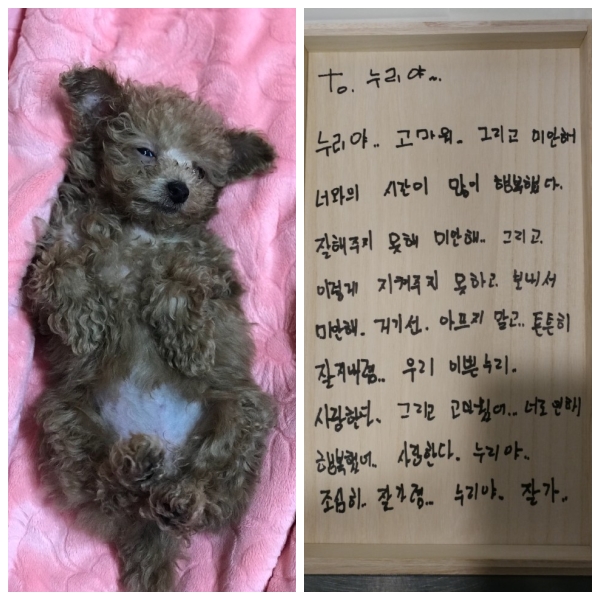 To. 누리야...
누리야.. 고마워. 그리고 미안해
너와의 시간이 많이 행복했다.
잘해주지 못해 미안해.. 그리고.
이렇게 지켜주지 못하고 보내서
미안해. 거기선. 아프지 말고.. 튼튼히
잘지내렴.. 우리 이쁜누리.
사랑한다. 그리고 고마웠어.. 너로 인해
행복했어. 사랑한다. 누리야..
조심히. 잘가렴.. 누리야. 잘가..